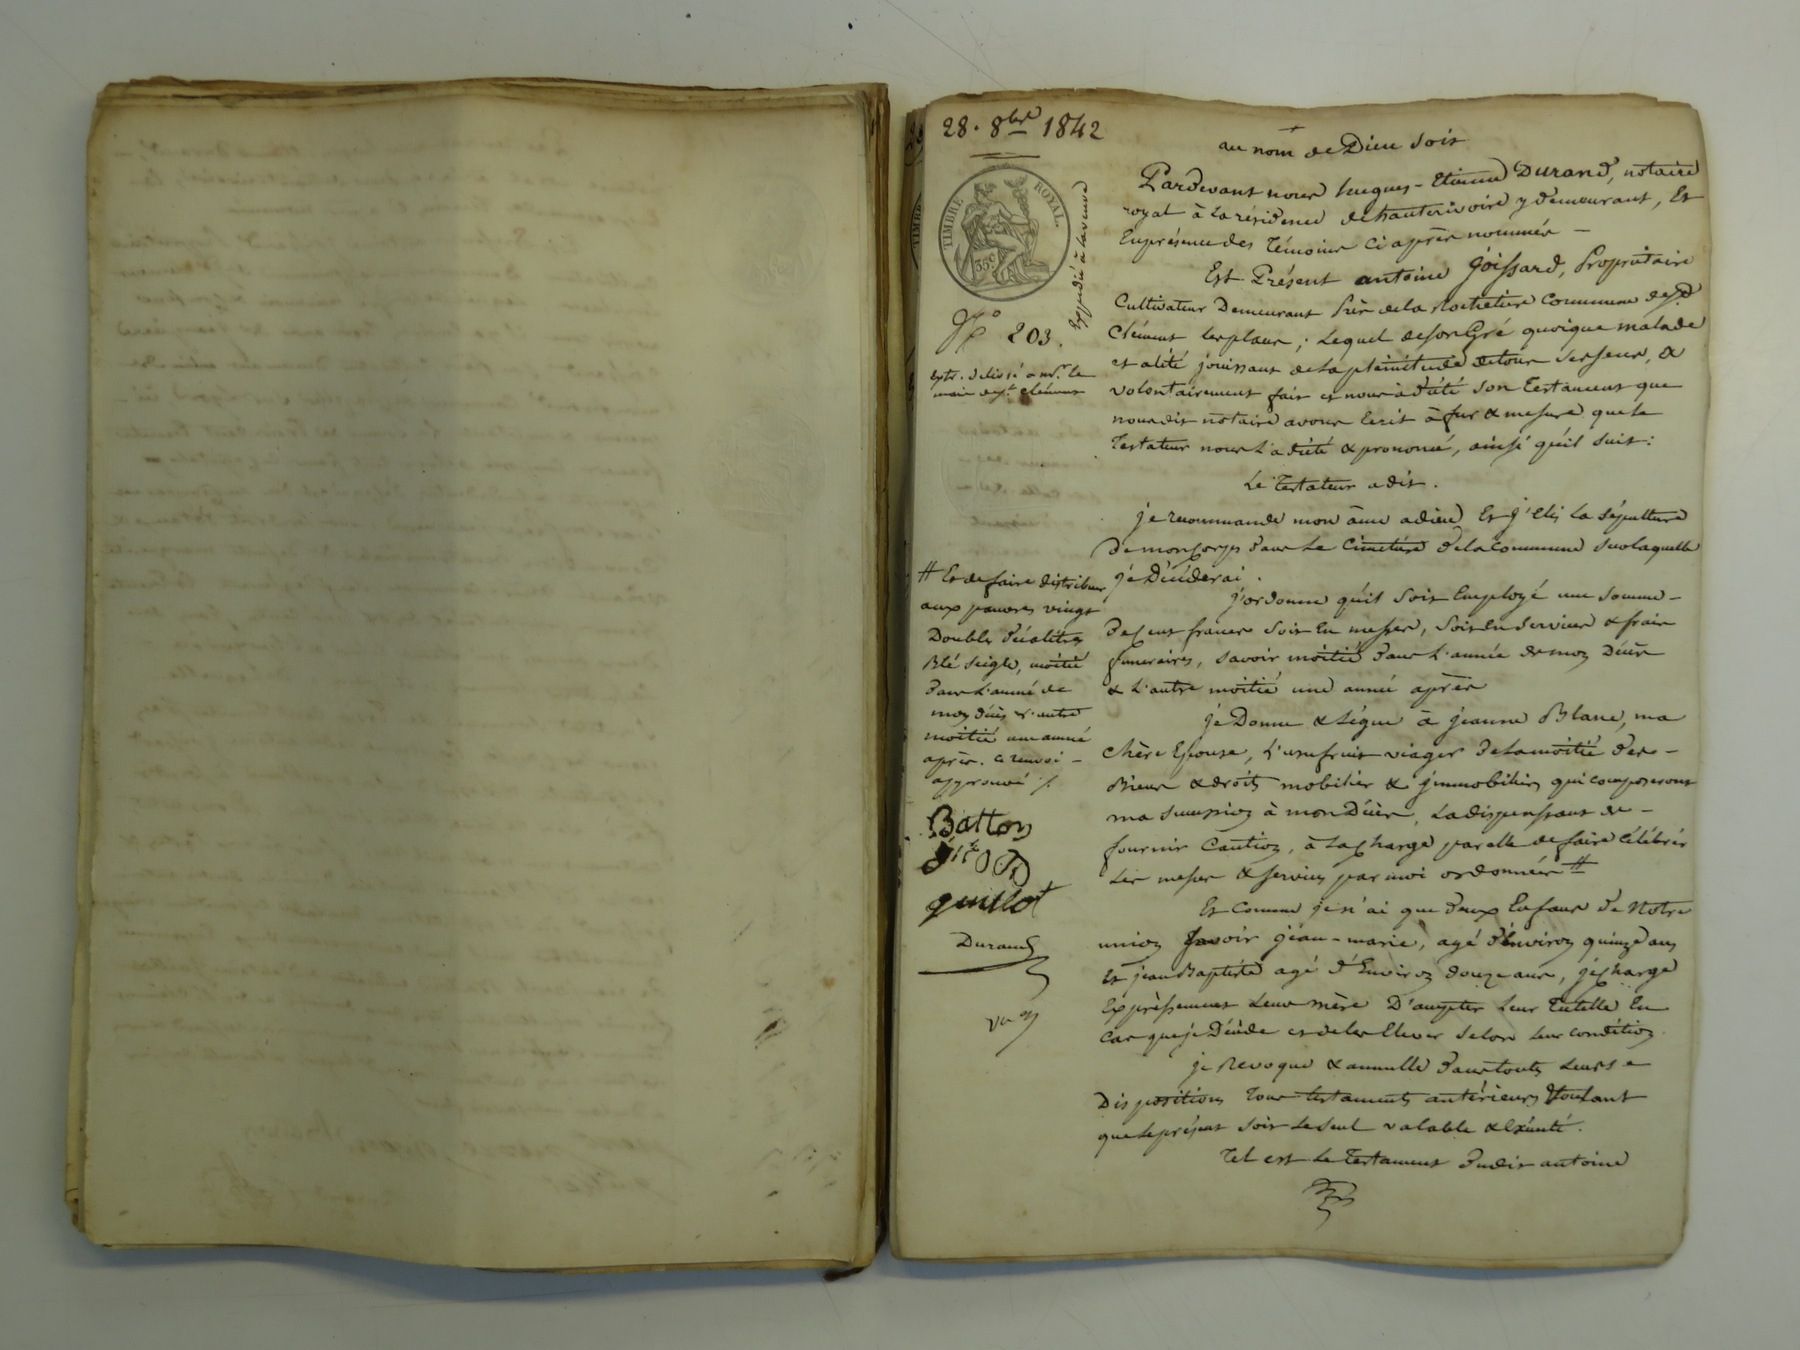 28. 8bre 1842
TIMBRE ROYAL
35c
No 203.
Expédié à la veuve
extr. délivré à mr. le
maire de st. clément
au nom de Dieu soit
Pardevant nous hugues-Etienne Durand, notaire
royal à la résidence de hauterivoire y demeurant, Et
En présence des Témoins ci après nommés -
Est Présent antoine Goissard, Propriétaire
Cultivateur Demeurant Lieu de la Commune de St.
Clément les places ; Lequel de son Gré quoique malade
et alité jouissant de la plénitude de tous ses sens, a
volontairement fait et nous a dicté son Testament que
nousdit notaire avons Ecrit à fur & mesure que le
Testateur nous l'a dicté & prononcé, ainsi qu'il suit :
Le Testateur a dit .
je recommande mon âme a dieu Et j'Elis la sépulture
De mon corps dans Le Cimetière de la commune sur laquelle
je Décéderai .
j'ordonne qu'il soit Employé une somme -
de Cent francs soit En messes, soit En services & frais
funeraires, savoir moitié dans L'année de mon Décès
& L'autre moitié une année après
je Donne & Lègue à jeanne Blanc, ma
chère Epouse, L'usufruit viager de la moitié des -
Biens & droits mobiliers & jmmobiliers qui composeront
ma succession à mon Décès, La dispensant de -
fournir Caution, à la charge par elle de faire célébrer
Les messes & services par moi ordonnées #
Et comme je n'ai que deux Enfans de Notre
union savoir jean-marie, agé d'Environ quinze ans
Et jean Baptiste agé d'Environ douze ans, je charge
Expressement Leur mère D'accepter Leur Tutelle En
Cas que je Décède et de les Elever selon leur condition
je Revoque & annulle dans toutes Leurs
Dispositions Tous testaments antérieurs Voulant
que le présent soit Le seul valable & Exécuté .
Tel est Le Testament dudit antoine
# Et de faire distribuer
aux pauvres vingt
Doubles décalitres
Blé seigle, moitié
dans L'année de
mon décès & l'autre
moitié une année
après. ce renvoi -
approuvé /.
Batton
guillot
Durand